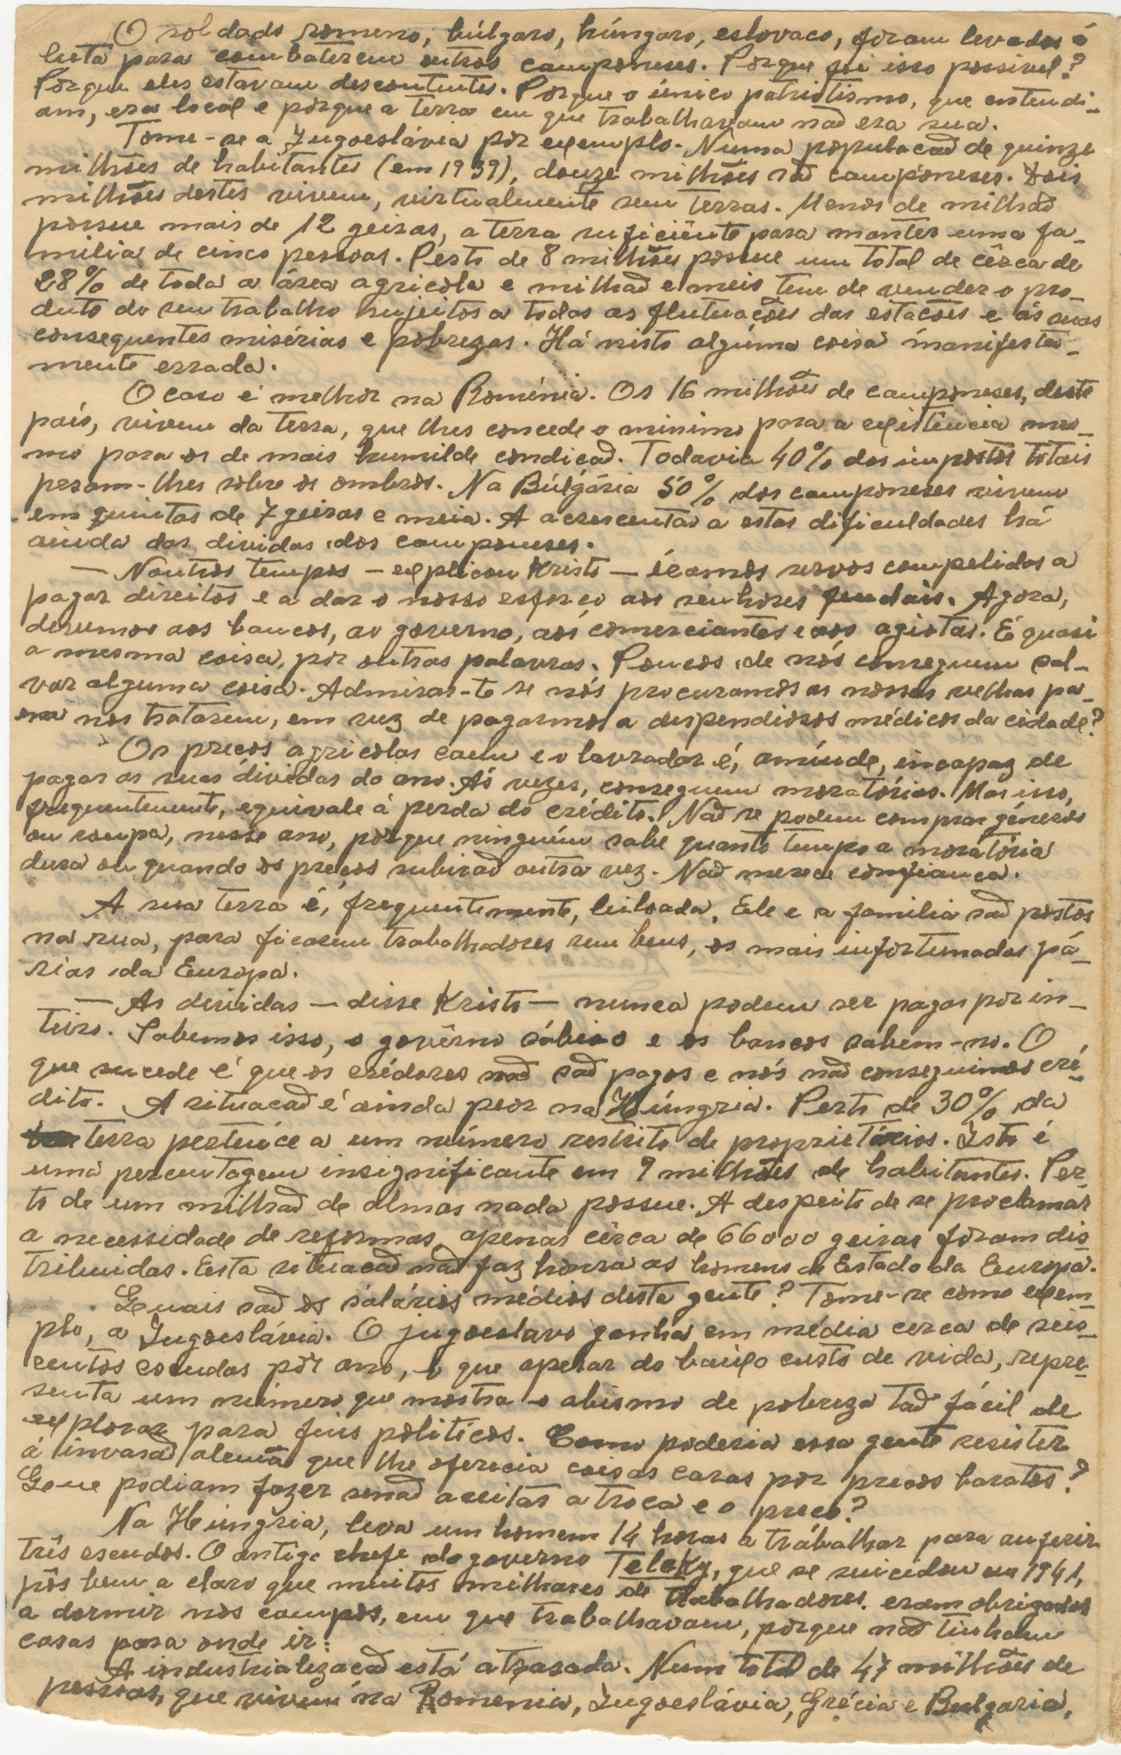 O soldado romeno, búlgaro, húngaro, eslovaco, foram levados á
luta para combaterem outros camponeses. Porque foi isso possivel?
Porque eles estavam descontentes. Porque o único patriotismo, que entendi-
am, era local e porque a terra em que trabalhavam não era sua.
Tome-se a Jugoeslávia por exemplo. Numa população de quinze
milhões de habitantes (em 1939), douze milhões são camponeses. Dois
milhões destes vivem, virtualmente sem terras. Menos de milhão
possue mais de 12 geiras, a terra suficiênte para manter uma fa-
milia de cinco pessoas. Perto de 8 milhões possue um total de cêrca de
28% de toda a área agricola e milhão e meio tem de vender o pro-
duto do seu trabalho sujeitos a todas as flutuações das estações e ás suas
consequentes misérias e pobrezas. Há nisto alguma coisa manifesta-
mente errada.
O caso é melhor na Roménia. Os 16 milhões de camponeses, deste
país, vivem da terra, que lhes concede o minimo para a existência mes-
mo para os de mais humilde condição. Todavia 40% dos impostos totais
pesam-lhes sobre os ombros. Na Bulgária 50% dos camponeses vivem
em quintas de 7 geiras e meia. A acrescentar a estas dificuldades há
ainda as dividas dos camponeses.
— Noutros tempos — explicou Kristo — éramos servos compelidos a
pagar direitos e a dar o nosso esforço aos senhores feudais. Agora,
devemos aos bancos, ao governo, aos comerciantes e aos agiotas. É quasi
a mesma coisa, por outras palavras. Poucos de nós conseguem sal-
var alguma coisa. Admiras-te se nós procuramos as nossas velhas pa-
ra nos tratarem, em vez de pagarmos a despendiosos médicos da cidade?
Os preços agricolas caem e o lavrador é, amiúde, incapaz de
pagar as suas dividas do ano. Ás vezes, conseguem moratórias. Mas isso,
frequentemente, equivale á perda do crédito. Não se podem comprar géneros
ou roupa, nesse ano, porque ninguém sabe quanto tempo a moratória
dura ou quando os preços subirão outra vez. Não merece confiança.
A sua terra é, frequentemente, leiloada. Ele e a familia são postos
na rua, para ficarem trabalhadores sem bens, os mais infortunados pá-
rias da Europa.
— As dividas — disse Kristo — nunca podem ser pagas por in-
teiro. Sabemos isso, o govêrno sabe-o e os bancos sabem-no. O
que sucede é que os crédores não são pagos e nós não conseguimos cré-
dito. A situação é ainda peor na Húngria. Perto de 30% da
terra pertence a um número restrito de proprietários. Isto é
uma percentagem insignificante em 9 milhões de habitantes. Per-
to de um milhão de almas nada possue. A despeito de se proclamar
a necessidade de reformas, apenas cêrca de 66000 geiras foram dis-
tribuidas. Esta situação não faz honra aos homens de Estado da Europa.
Quais são os salários médios desta gente? Tome-se como exem-
plo, a Jugoeslávia. O jugoeslavo ganha em média cerca de seis-
centos escudos por ano, o que apesar do baixo custo de vida, repre-
senta um número que mostra o abismo de pobreza tão fácil de
explorar para fins politicos. Como poderia essa gente resistir
á invasão alemã que lhe oferecia coisas caras por preços baratos?
Que podiam fazer senão aceitar a troca e o preço?
Na Húngria, leva um homem 14 horas a trabalhar para auferir
três escudos. O antigo chefe do governo Teleky, que se suicidou em 1941,
pôs bem a claro que muitos milhares de trabalhadores eram obrigados
a dormir nos campos, em que trabalhavam, porque não tinham
casas para onde ir.
A industrialização está atrasada. Num total de 47 milhões de
pessoas, que vivem na Romenia, Jugoeslávia, Grécia e Bulgaria,